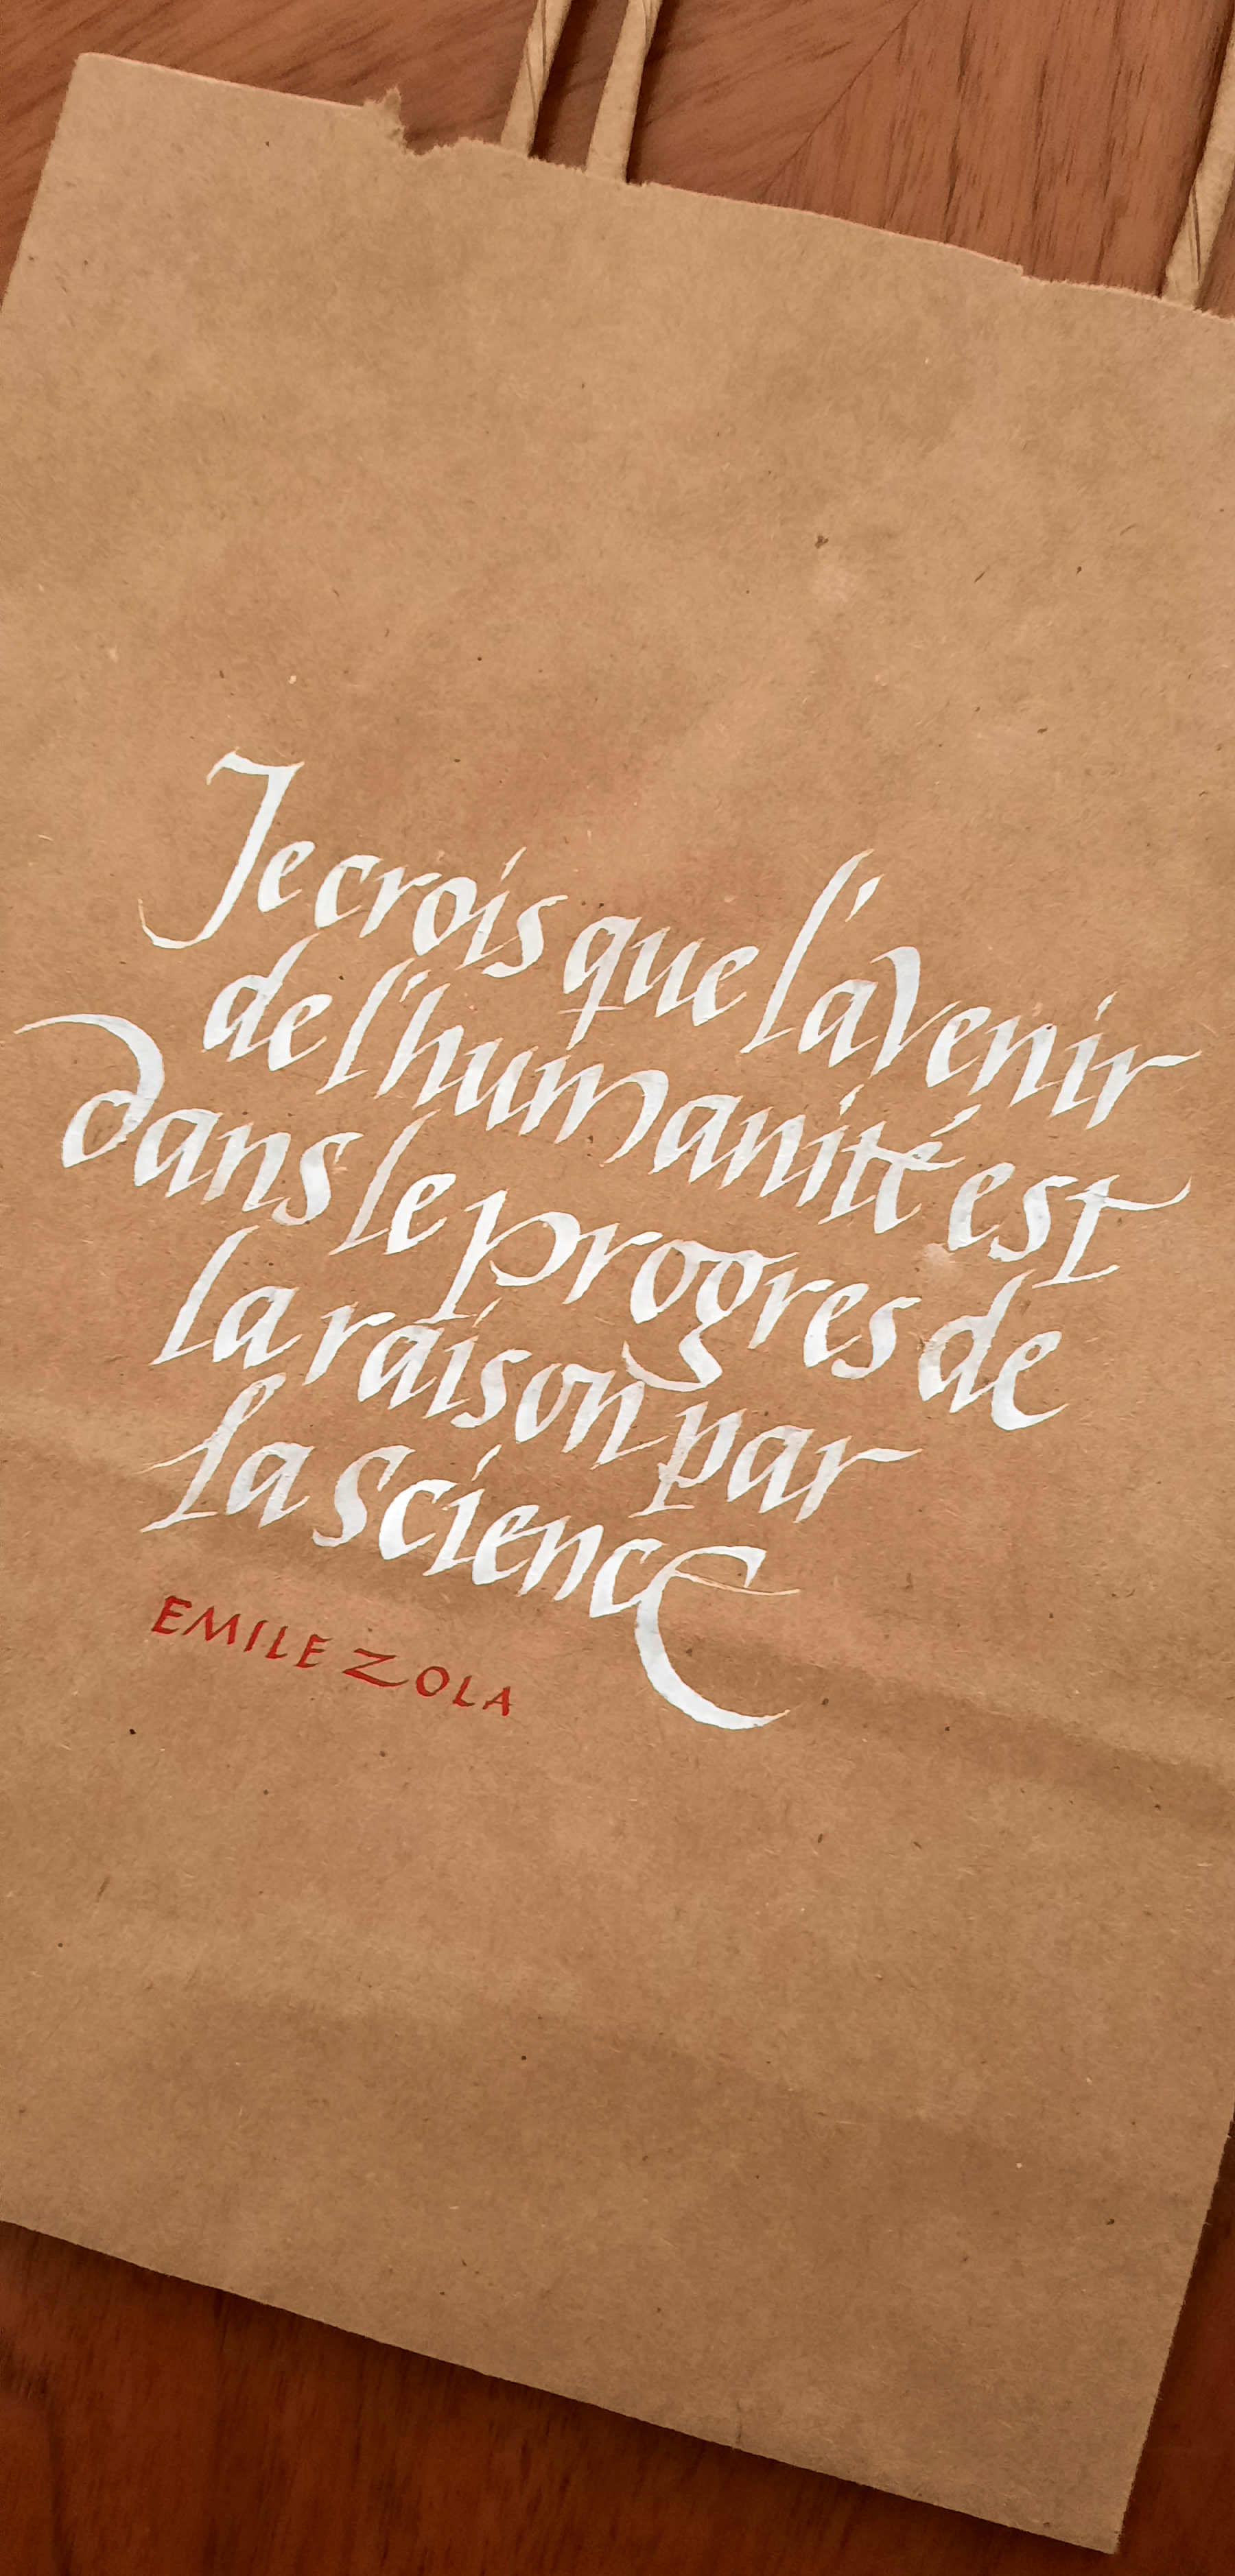 Je crois que l'avenir
de l'humanité est
dans le progres de
la raison par
la science
EMILE ZOLA